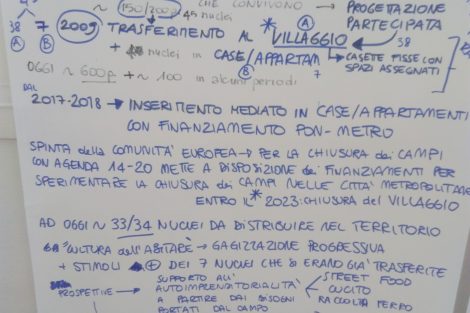 CHE CONVIVONO → PROGETTAZIONE PARTECIPATA
~ 150/200 p 45 nuclei
38 7 2009 TRASFERIMENTO AL *VILLAGGIO
A
38
B + nuclei in CASE/APPARTAM → CASETE FISSE CON SPAZI ASSEGNATI
B 7
OGGI ~ 600 p + ~ 100 in alcuni periodi
DAL
2017-2018 → INSERIMENTO MEDIATO IN CASE/APPARTAMENTI
CON FINANZIAMENTO PON-METRO
SPINTA della COMUNITA' EUROPEA → PER LA CHIUSURA dei CAMPI
CON AGENDA 14-20 METTE A DISPOSIZIONE dei FINANZIAMENTI PER
SPERIMENTARE LA CHIUSURA dei CAMPI NELLE CITTA' METROPOLITANE
ENTRO IL * 2023: CHIUSURA del VILLAGGIO
AD OGGI ~ 33/34 NUCLEI DA DISTRIBUIRE NEL TERRITORIO
CULTURA dell'ABITARE → GAGIZZAZIONE PROGRESSIVA
+ STIMOLI + DEI 7 NUCLEI CHE SI ERANO GIA' TRASFERITE
PROSPETTIVE → SUPPORTO ALL' AUTOIMPRENDITORIALITA'
STREET FOOD
CUCITO
RACCOLTA FERRO
A PARTIRE DAI BISOGNI
PORTATI DAL CAMPO